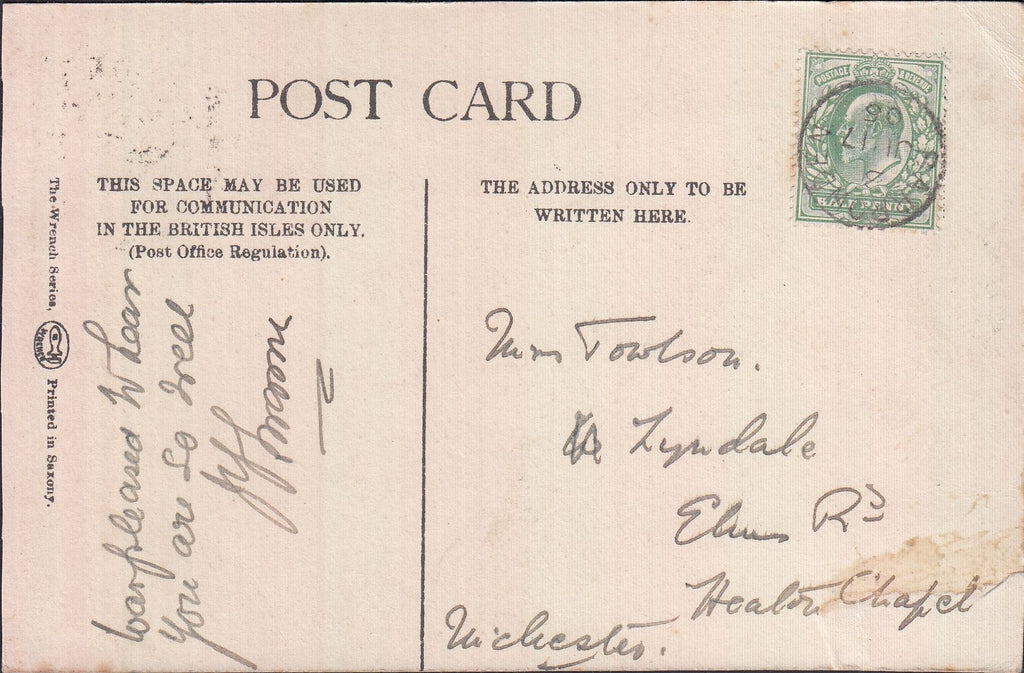 POST CARD
THIS SPACE MAY BE USED
FOR COMMUNICATION
IN THE BRITISH ISLES ONLY.
(Post Office Regulation).
THE ADDRESS ONLY TO BE
WRITTEN HERE.
POSTAGE & REVENUE
HALFPENNY
JU 17
06
The Wrench Series,
WRENCH
Printed in Saxony.
was pleased to hear
you are so well
Towlson.
Lyndale
Elms Rd
Heaton Chapel